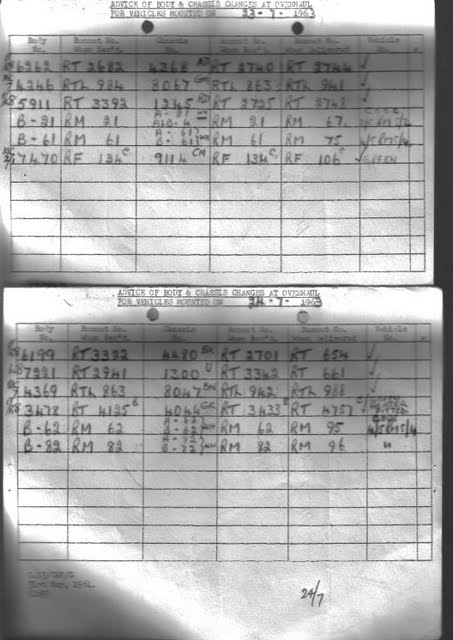 ADVICE OF BODY & CHASSIS CHANGES AT OVERHAUL
FOR VEHICLES MOUNTED ON 23-7-1963
Body No. Bonnet No. When Rec'd. Chassis No. Bonnet No. Bonnet No. When Delivered Vehicle No.
6262 RT 2682 4368 RT 2740 RT 2744 ✓
4246 RTL 984 8067 RTL 863 RTL 941 ✓
5911 RT 3392 1245 RT 2725 RT
B-21 RM 21 RM 21 RM 67
B-61 RM 61 A-61 B-61 RM 61 RM 75
7470 RF 134 C 9114 CM RF 134 C RF 106 C GREEN
ADVICE OF BODY & CHASSIS CHANGES AT OVERHAUL
FOR VEHICLES MOUNTED ON 24-7-1963
Body No. Bonnet No. When Rec'd. Chassis No. Bonnet No. When Rec'd. Bonnet No. When Delivered Vehicle No.
6199 RT 3322 4480 RT 2701 RT 654 ✓
7221 RT 2941 1300 U RT 3342 RT 661 ✓
4369 RTL 863 8047 RTL 942 RTL 968 ✓
3478 RT 4125 4044 GR RT 3433 RT 4757
B-62 RM 62 A-62 B-62 RM 62 RM 95
B-82 RM 82 A-82 B-82 RM 82 RM 96 "
24/7